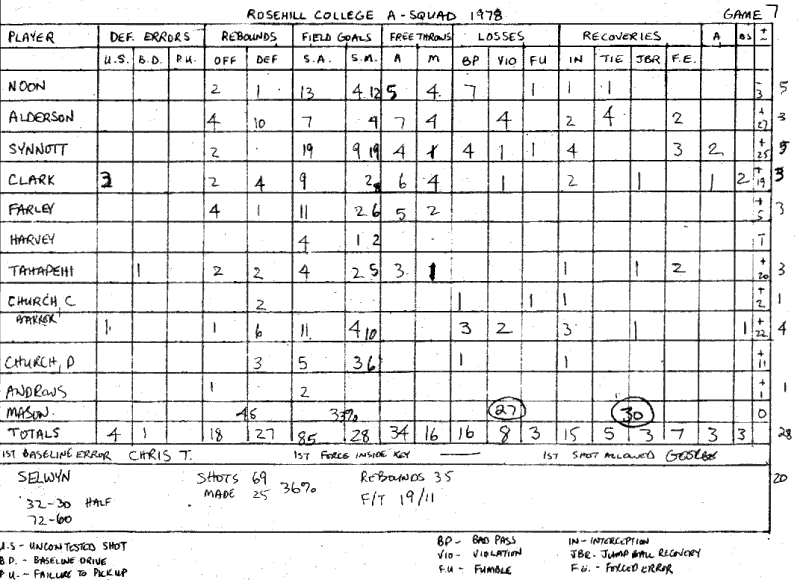 ROSEHILL COLLEGE A-SQUAD 1978 GAME 7
PLAYER DEF. ERRORS REBOUNDS FIELD GOALS FREE THROWS LOSSES RECOVERIES A BS + -
U.S. B.D. P.U. OFF DEF S.A. S.M. A M BP VIO FU IN TIE JBR F.E.
NOON 2 1 13 4 12 5 4 7 1 1 1 - 3 5
ALDERSON 4 10 7 4 7 4 4 2 4 2 + 27 3
SYNNOTT 2 19 9 19 4 1 4 1 1 4 3 2 + 25 5
CLARK 2 4 9 2 6 4 1 2 1 1 2 + 19 3
FARLEY 4 1 11 2 6 5 2 + 5 3
HARVEY 4 1 2 - 1
TAHAPEHI 1 2 2 4 2 5 3 1 1 1 2 + 20 3
CHURCH, C 2 1 1 1 + 2 1
BARKER 1 1 6 11 4 10 3 2 3 1 1 + 22 4
CHURCH, D 3 5 3 6 1 1 + 11
ANDREWS 1 2 + 1 1
MASON 45 33% 27 30 0
TOTALS 4 1 18 27 85 28 34 16 16 8 3 15 5 3 7 3 3 28
1ST BASELINE ERROR CHRIS T. 1ST FORCE INSIDE KEY — 1ST SHOT ALLOWED
SELWYN SHOTS 69 36% REBOUNDS 35 20
MADE 25 F/T 19/11
32-30 HALF
72-60
U.S - UNCONTESTED SHOT BP - BAD PASS IN - INTERCEPTION
B.D. - BASELINE DRIVE VIO - VIOLATION JBR - JUMP BALL RECOVERY
P.U. - FAILURE TO PICK UP F.U - FUMBLE F.E. - FORCED ERROR